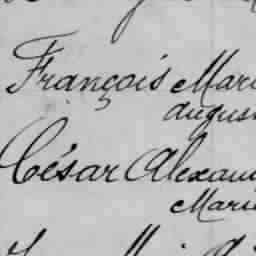 François Mari
august
César Alexan
Mari